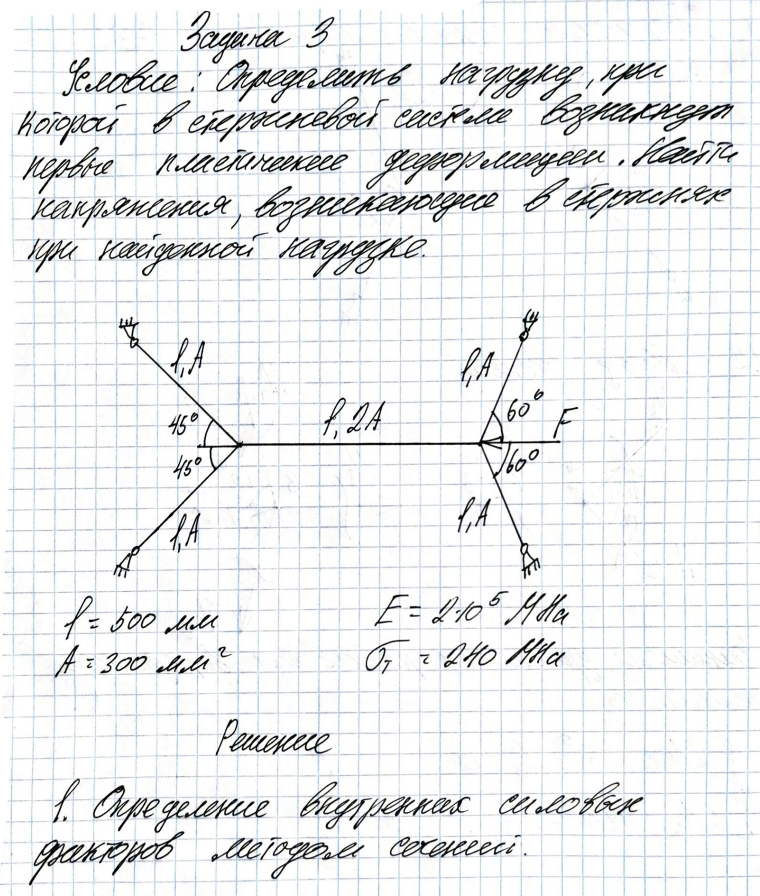 Задача 3
Условие: Определить нагрузку, при
которой в стержневой системе возникнут
первые пластические деформации. Найти
напряжения, возникающие в стержнях
при найденной нагрузке.
l, A
l, A
45°
l, 2A
60°
F
45°
60°
l, A
l, A
l = 500 мм
E = 2·10⁵ МПа
A = 300 мм²
σт = 240 МПа
Решение
1. Определение внутренних силовых
факторов методом сечений.